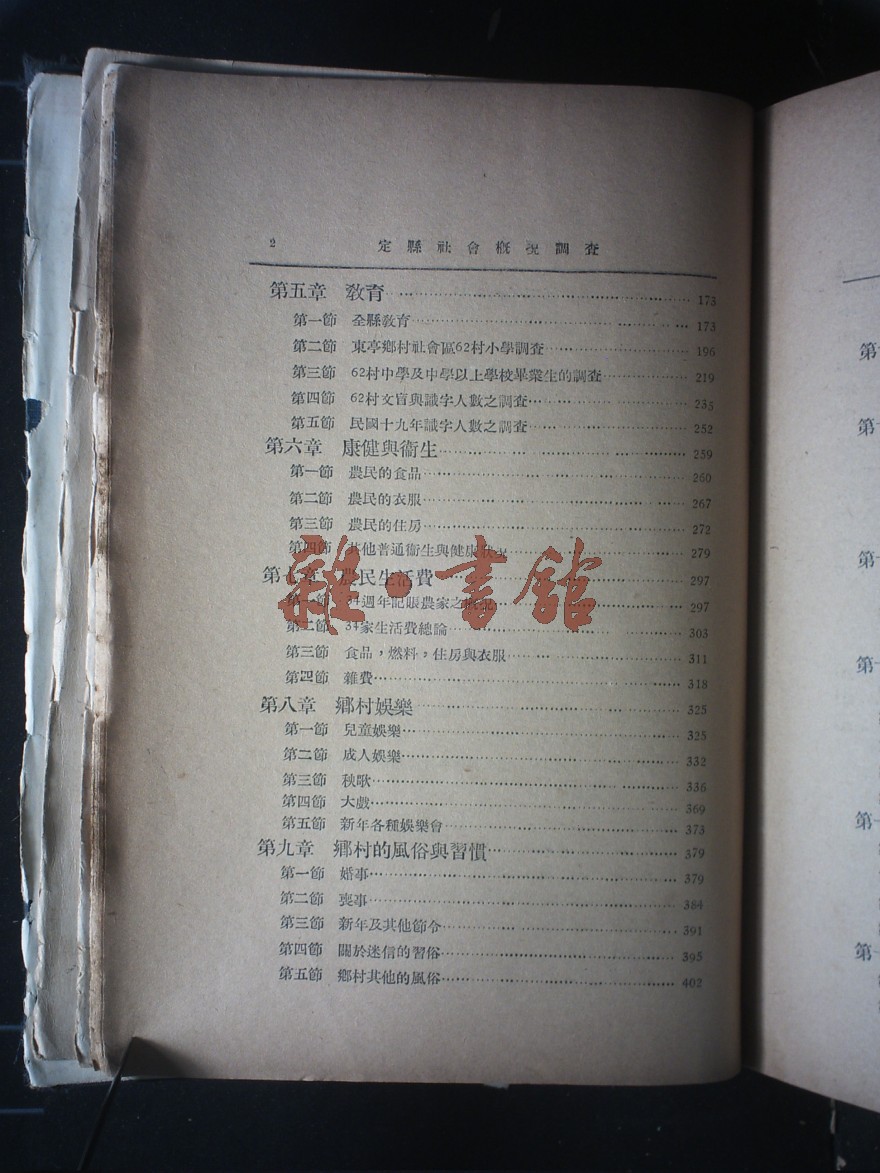 2 定縣社會概況調查
第五章 敎育 173
第一節 全縣敎育 173
第二節 東亭鄉村社會區62村小學調查 196
第三節 62村中學及中學以上學校畢業生的調查 219
第四節 62村文盲與識字人數之調查 235
第五節 民國十九年識字人數之調查 252
第六章 康健與衞生 259
第一節 農民的食品 260
第二節 農民的衣服 267
第三節 農民的住房 272
第四節 其他普通衞生與健康狀況 279
第七章 農民生活費 297
第一節 34週年記賬農家之概況 297
第二節 34家生活費總論 303
第三節 食品，燃料，住房與衣服 311
第四節 雜費 318
第八章 鄉村娛樂 325
第一節 兒童娛樂 325
第二節 成人娛樂 332
第三節 秧歌 336
第四節 大戲 369
第五節 新年各種娛樂會 373
第九章 鄉村的風俗與習慣 379
第一節 婚事 379
第二節 喪事 384
第三節 新年及其他節令 391
第四節 關於迷信的習俗 395
第五節 鄉村其他的風俗 402
雜·書館
第
第
第
第
第
第